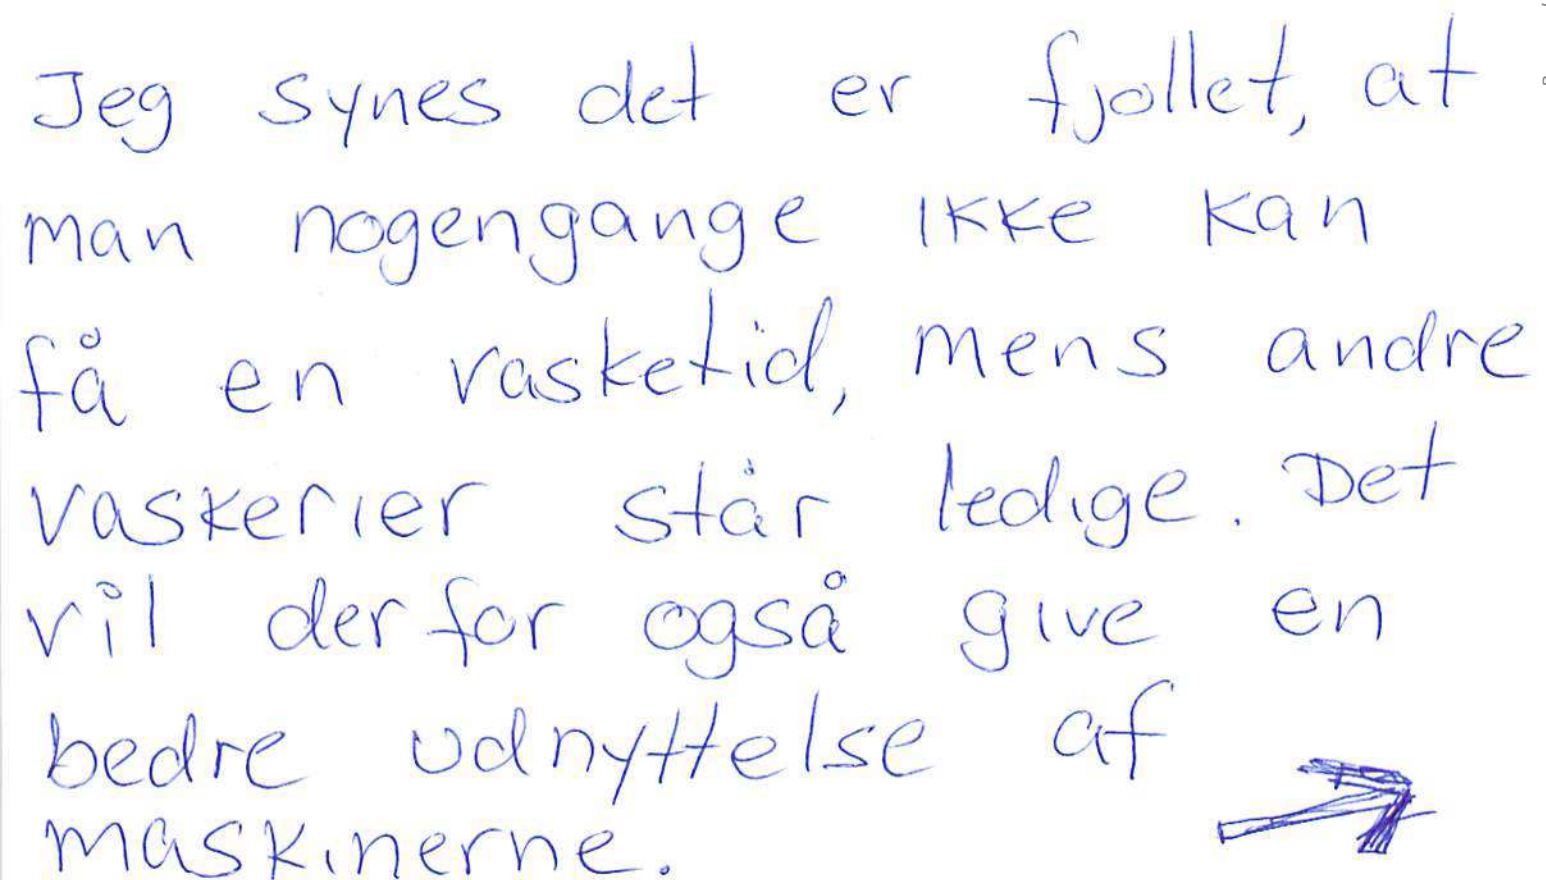 Jeg synes det er fjollet, at
man nogengange ikke kan
få en vasketid, mens andre
vaskerier står ledige. Det
vil derfor også give en
bedre udnyttelse af
maskinerne.